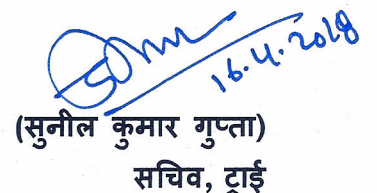 16.4.2018
(सुनील कुमार गुप्ता)
सचिव, ट्राई